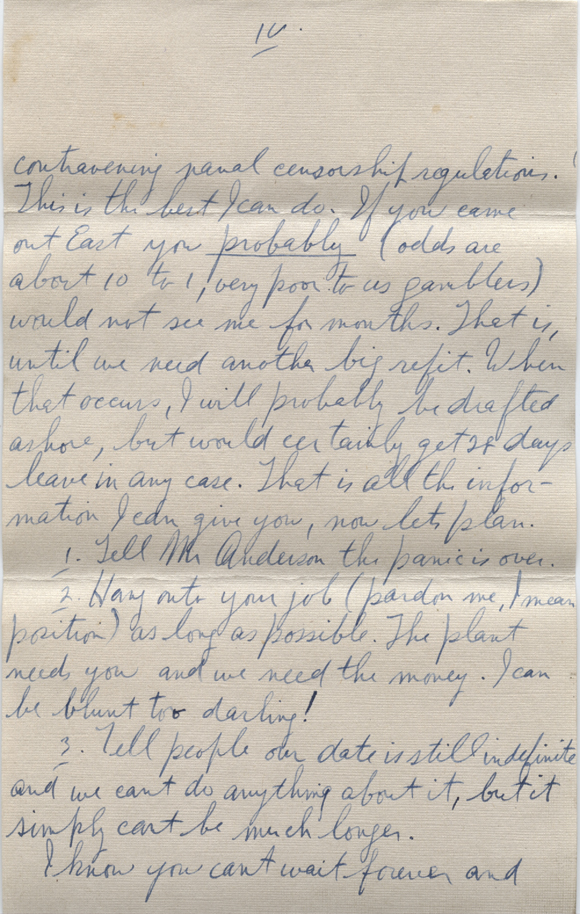 IV.
contravening naval censorship regulations.
This is the best I can do. If you came
out East you probably (odds are
about 10 to 1, very poor to us gamblers)
would not see me for months. That is,
until we need another big refit. When
that occurs, I will probably be drafted
ashore, but would certainly get 28 days
leave in any case. That is all the infor-
mation I can give you, now lets plan.
1. Tell Mr Anderson the panic is over.
2. Hang onto your job (pardon me, I mean
position) as long as possible. The plant
needs you and we need the money. I can
be blunt too darling!
3. Tell people our date is still indefinite
and we cant do anything about it, but it
simply cant be much longer.
I know you cant wait forever and